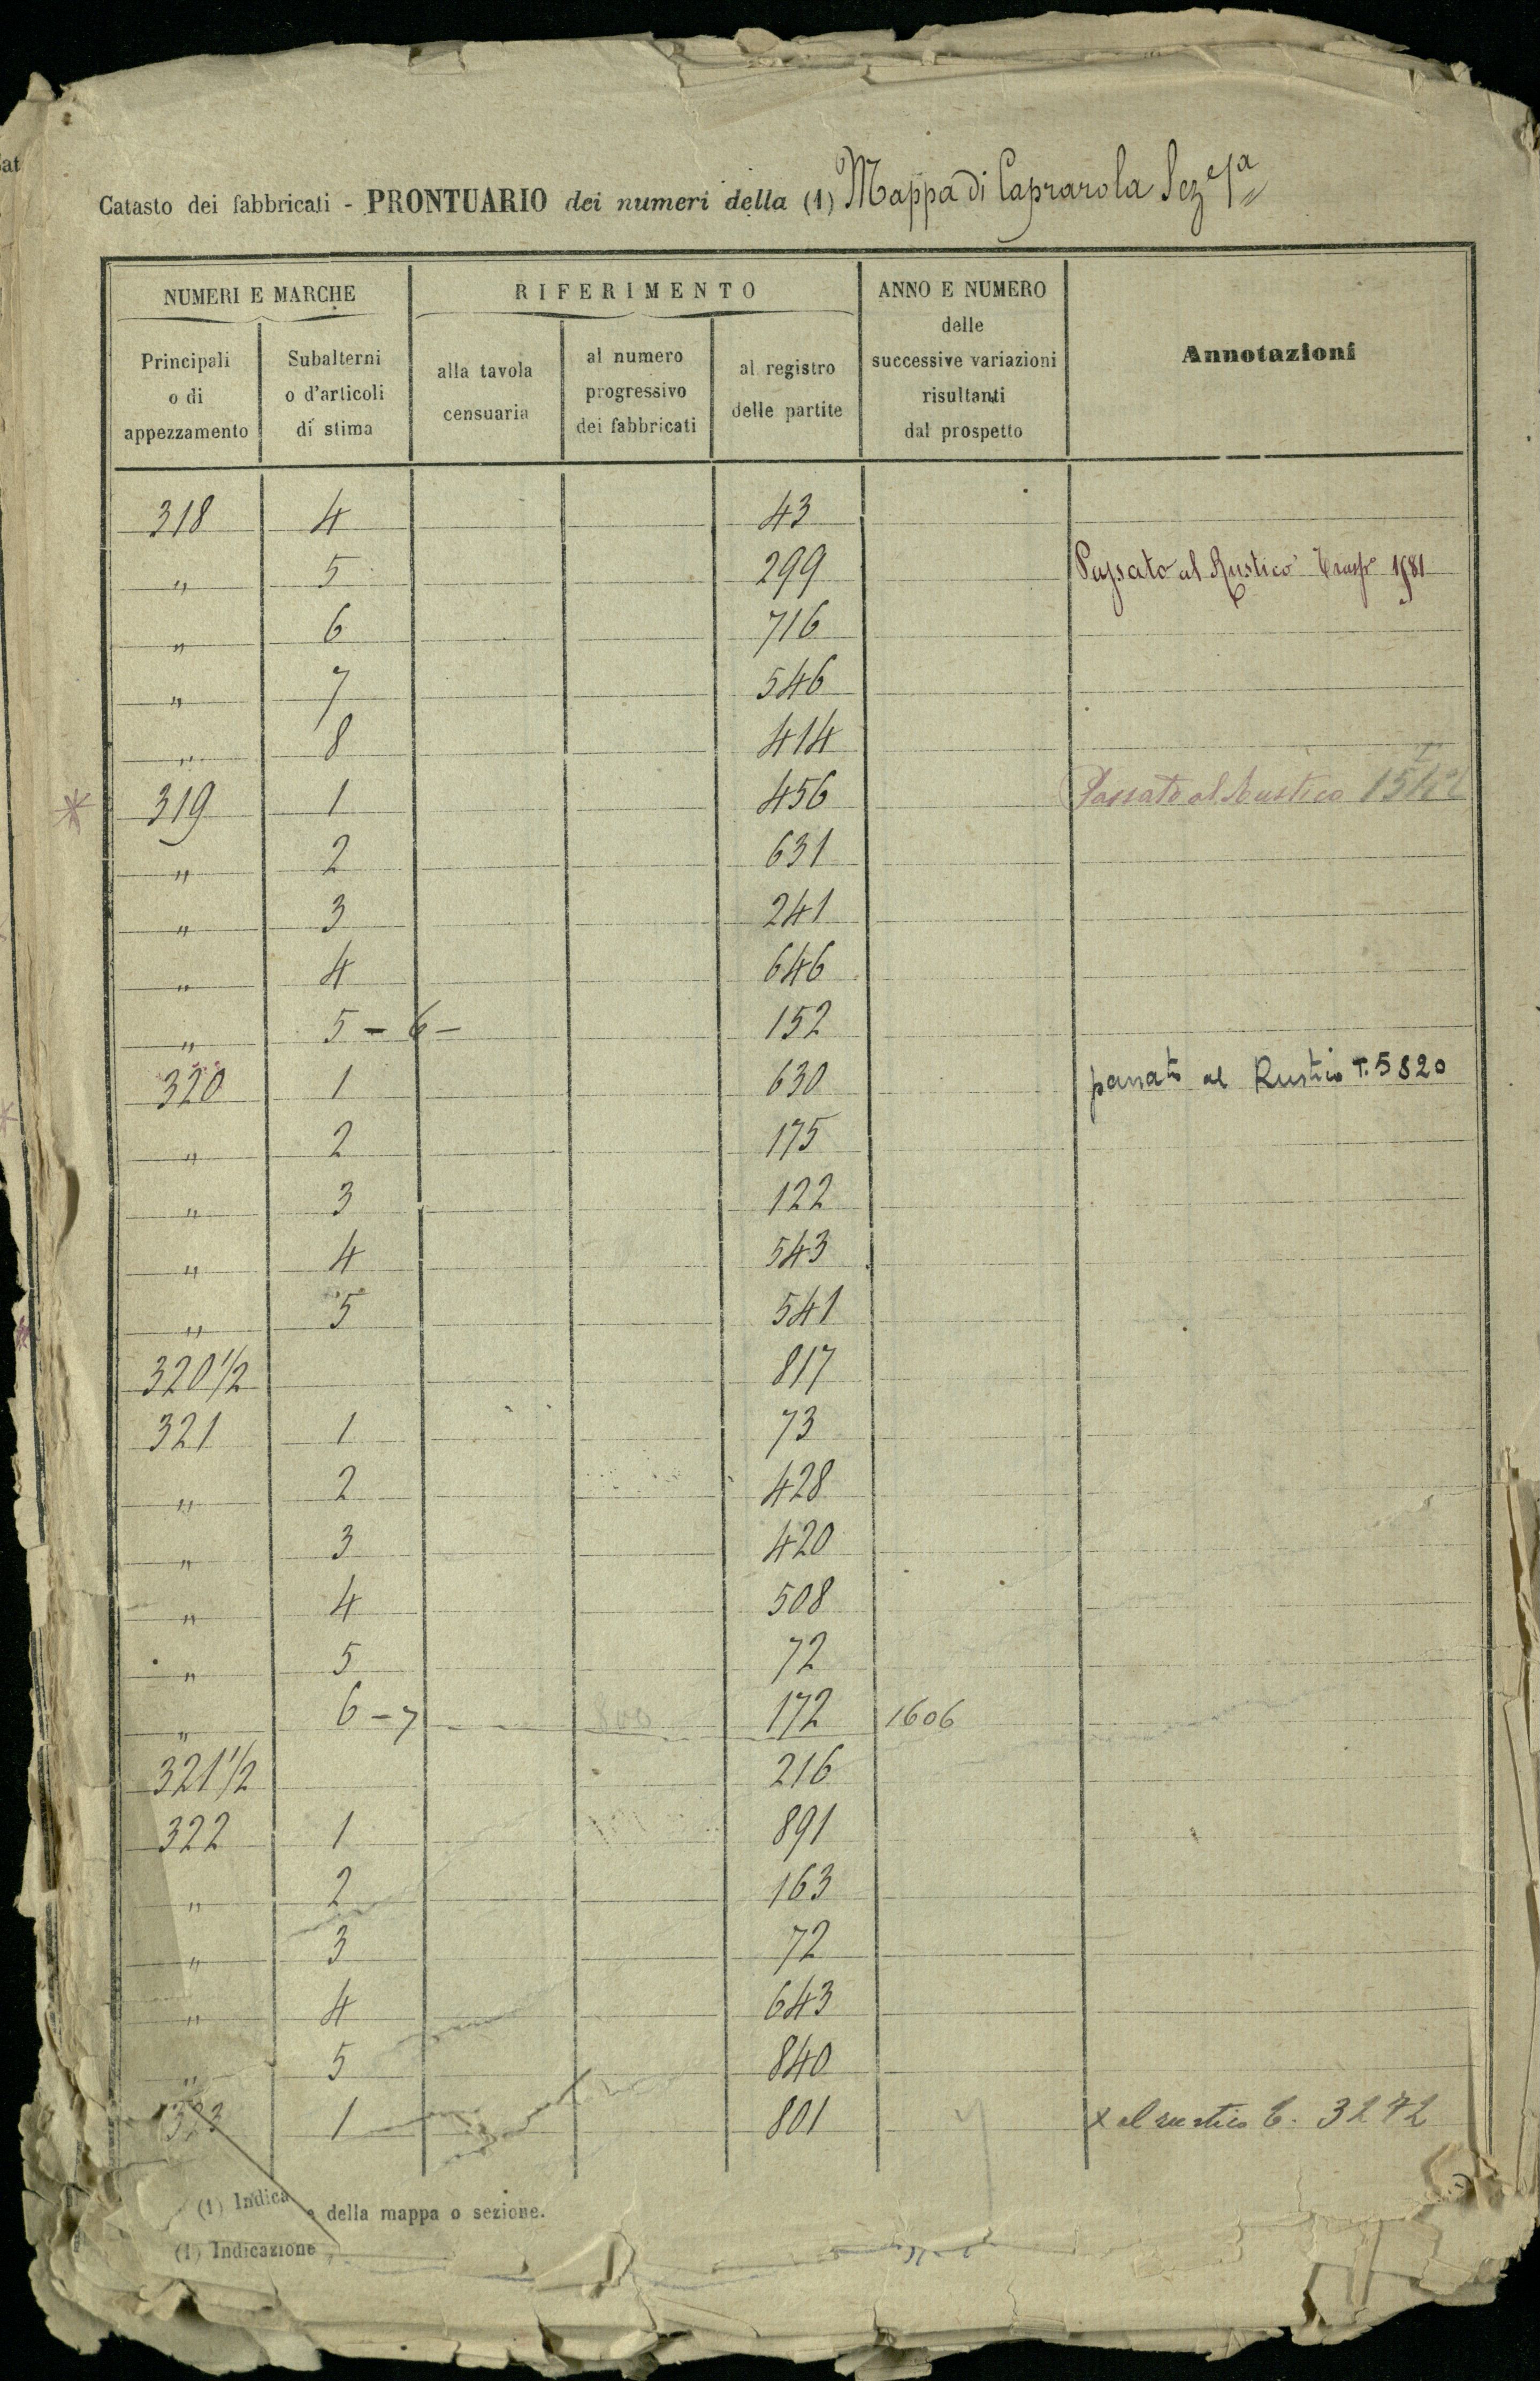 Catasto dei fabbricati - PRONTUARIO dei numeri della (1) Mappa di Caprarola Sez.e 1a
NUMERI E MARCHE
RIFERIMENTO
ANNO E NUMERO
delle
successive variazioni
risultanti
dal prospetto
Annotazioni
Principali
o di
appezzamento
Subalterni
o d'articoli
di stima
alla tavola
censuaria
al numero
progressivo
dei fabbricati
al registro
delle partite
318 4 43
" 5 299 Passato al Rustico
" 6 716
" 7 546
" 8 414
319 1 456 Passato al Rustico
" 2 631
" 3 241
" 4 646
" 5 - 6 - 152
320 1 630 passato al Rustico T. 5820
" 2 175
" 3 122
" 4 543
" 5 541
320 1/2 817
321 1 73
" 2 428
" 3 420
" 4 508
" 5 72
" 6 - 7 800 172 1606
321 1/2 216
322 1 891
" 2 163
" 3 72
" 4 643
" 5 840
323 1 801 x al rustico T. 3272
(1) Indica
e della mappa o sezione.
(1) Indicazione